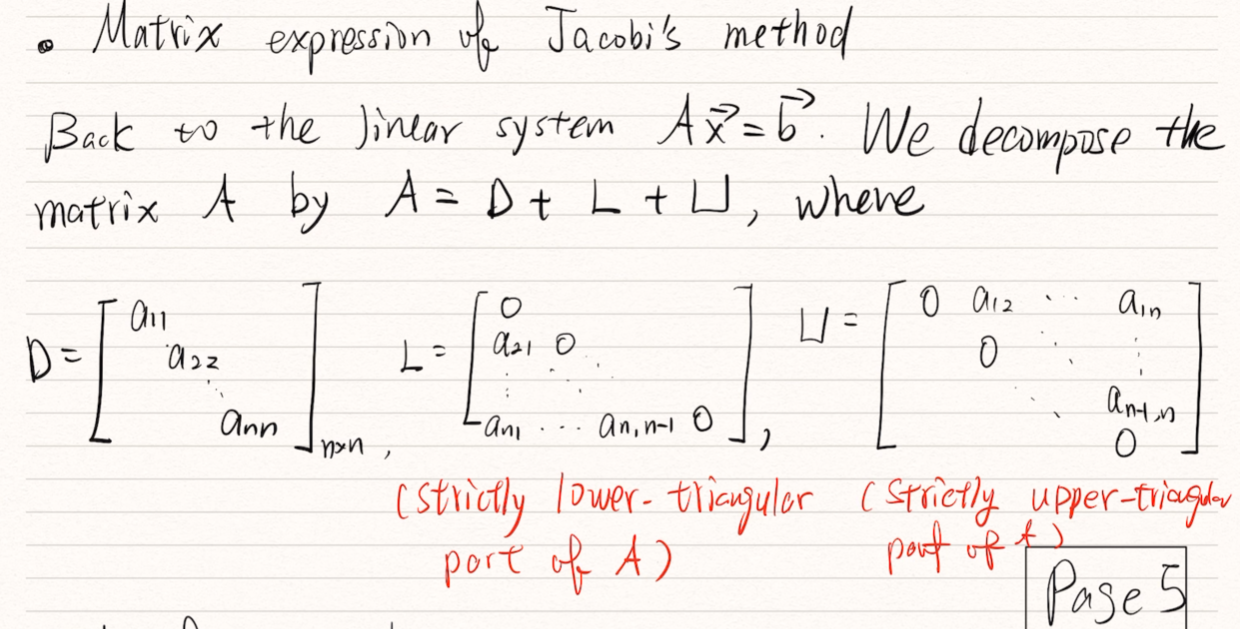 • Matrix expression of Jacobi's method
Back to the linear system Ax⃗ = b⃗. We decompose the
matrix A by A = D + L + U, where
D = [a11 a22 ⋱ ann]n×n, L = [0 a21 0 ⋮ ⋱ ⋱ an1 ⋯ an,n-1 0], U = [0 a12 ⋯ a1n 0 ⋱ ⋮ ⋱ an-1,n 0]
(strictly lower-triangular (strictly upper-triangular
part of A) part of A)
Page 5